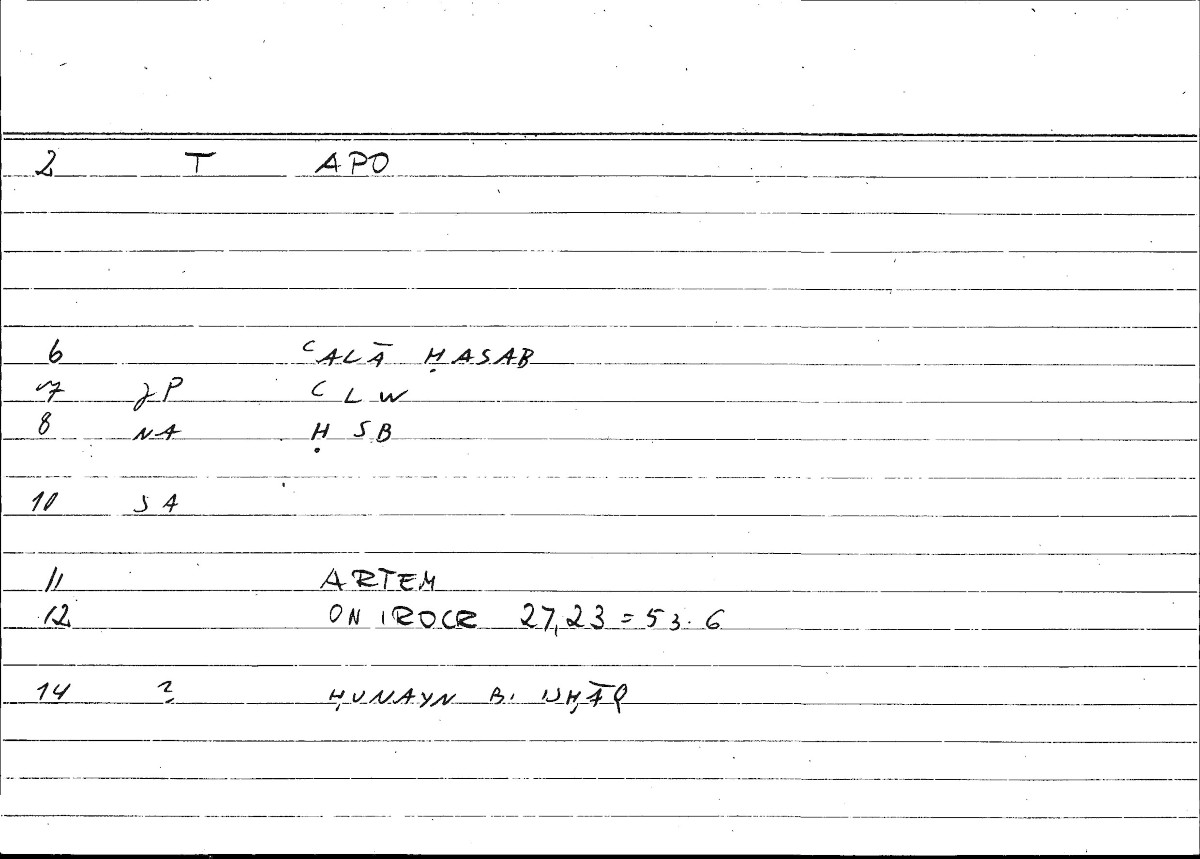 2 T APO
6 ᶜALĀ ḤASAB
7 JP ᶜLW
8 NA ḤSB
10 SA
11 ARTEM
12 ONIROCR 27,23 = 53.6
14 ? ḤUNAYN B. ISḤĀQ